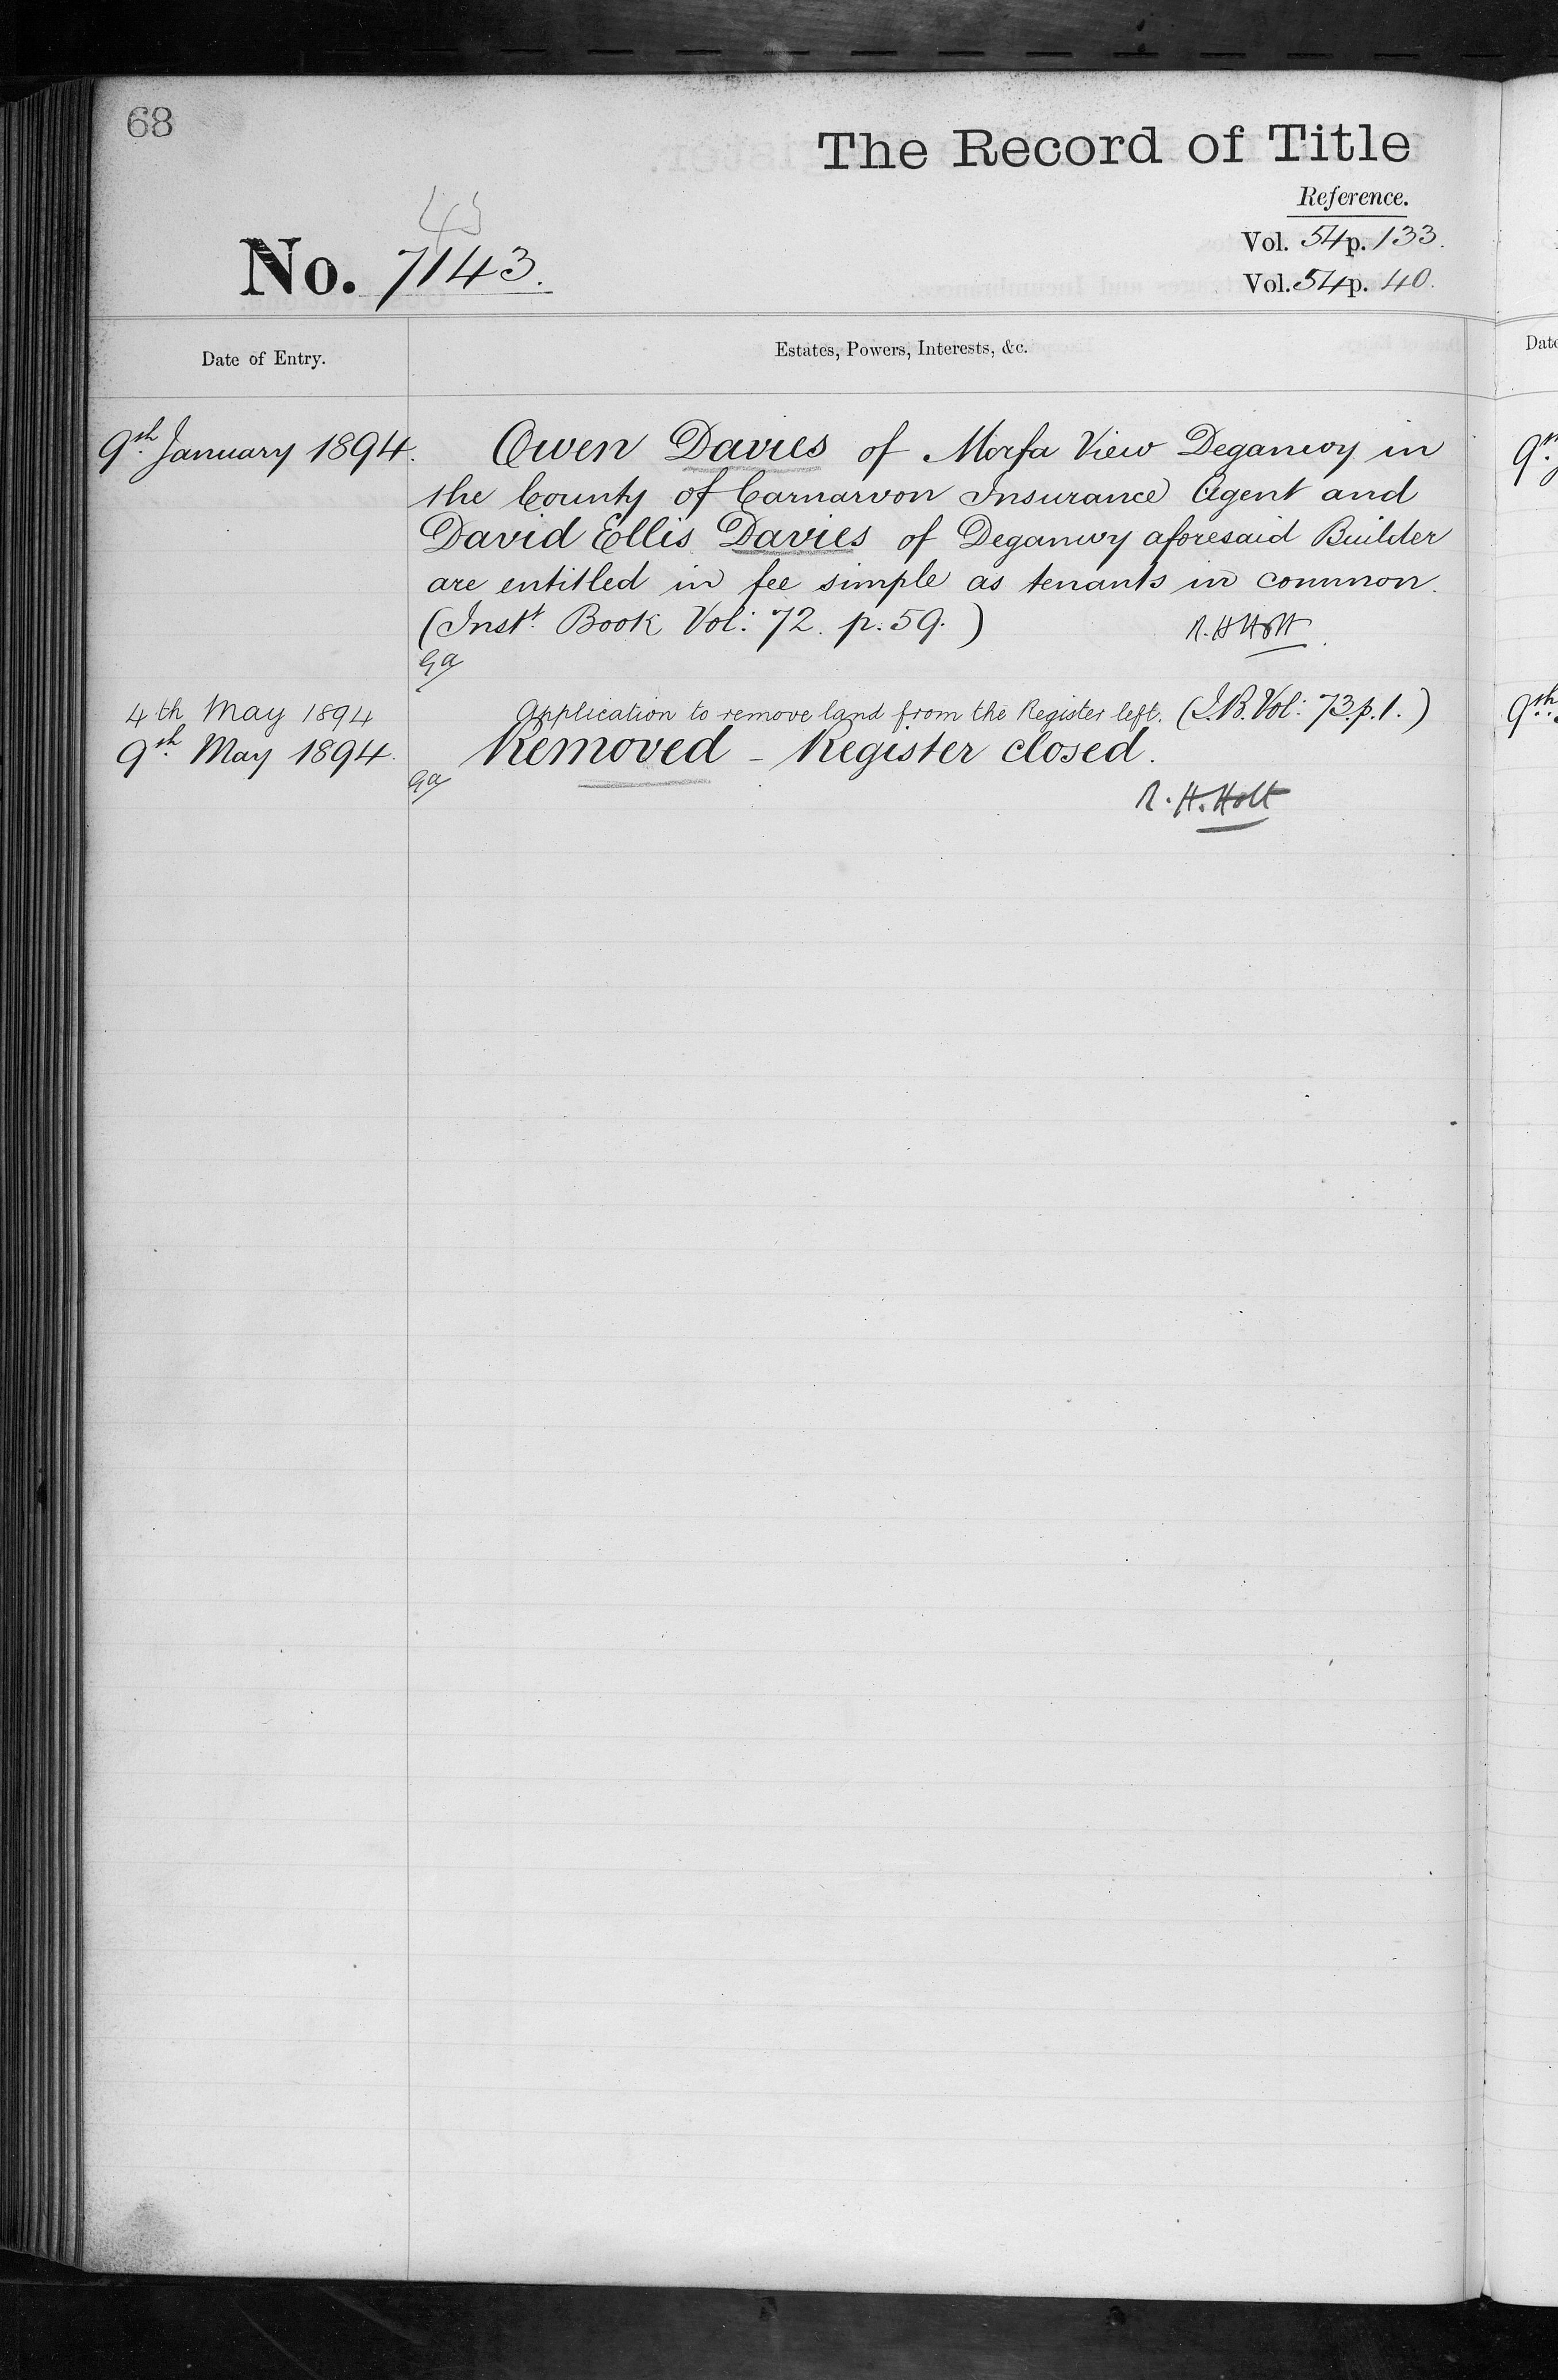 68
The Record of Title
Reference.
45
No. 7143.
Vol. 54 p. 133.
Vol. 54 p. 40.
Date of Entry.
Estates, Powers, Interests, &c.
Date
9th. January 1894.
Owen Davies of Morfa View Deganwy in
the County of Carnarvon Insurance Agent and
David Ellis Davies of Deganwy aforesaid Builder
are entitled in fee simple as tenants in common.
(Inst. Book Vol: 72. p. 59.)
R. H Holt
Ga
4th May 1894
Application to remove land from the Register left. (I.B. Vol: 73. p. 1.)
9th. May 1894.
Removed - Register closed.
Ga
R. H. Holt
9th.